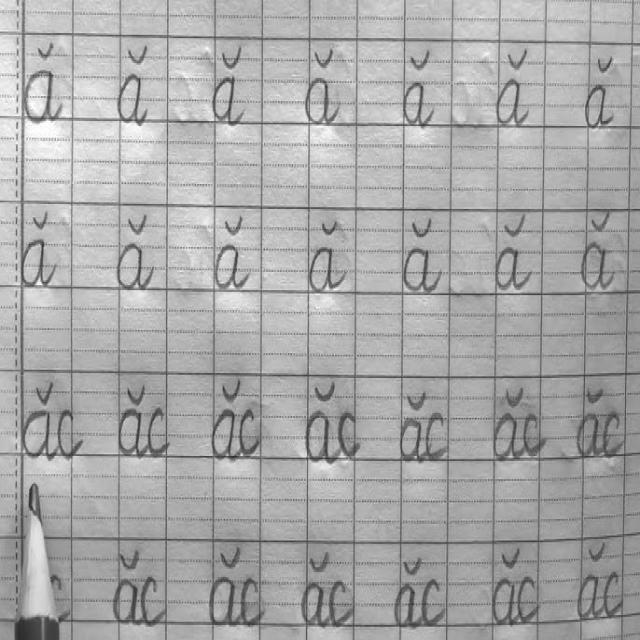 ă ă ă ă ă ă ă
ă ă ă ă ă ă ă
ăc ăc ăc ăc ăc ăc ăc
ăc ăc ăc ăc ăc ăc